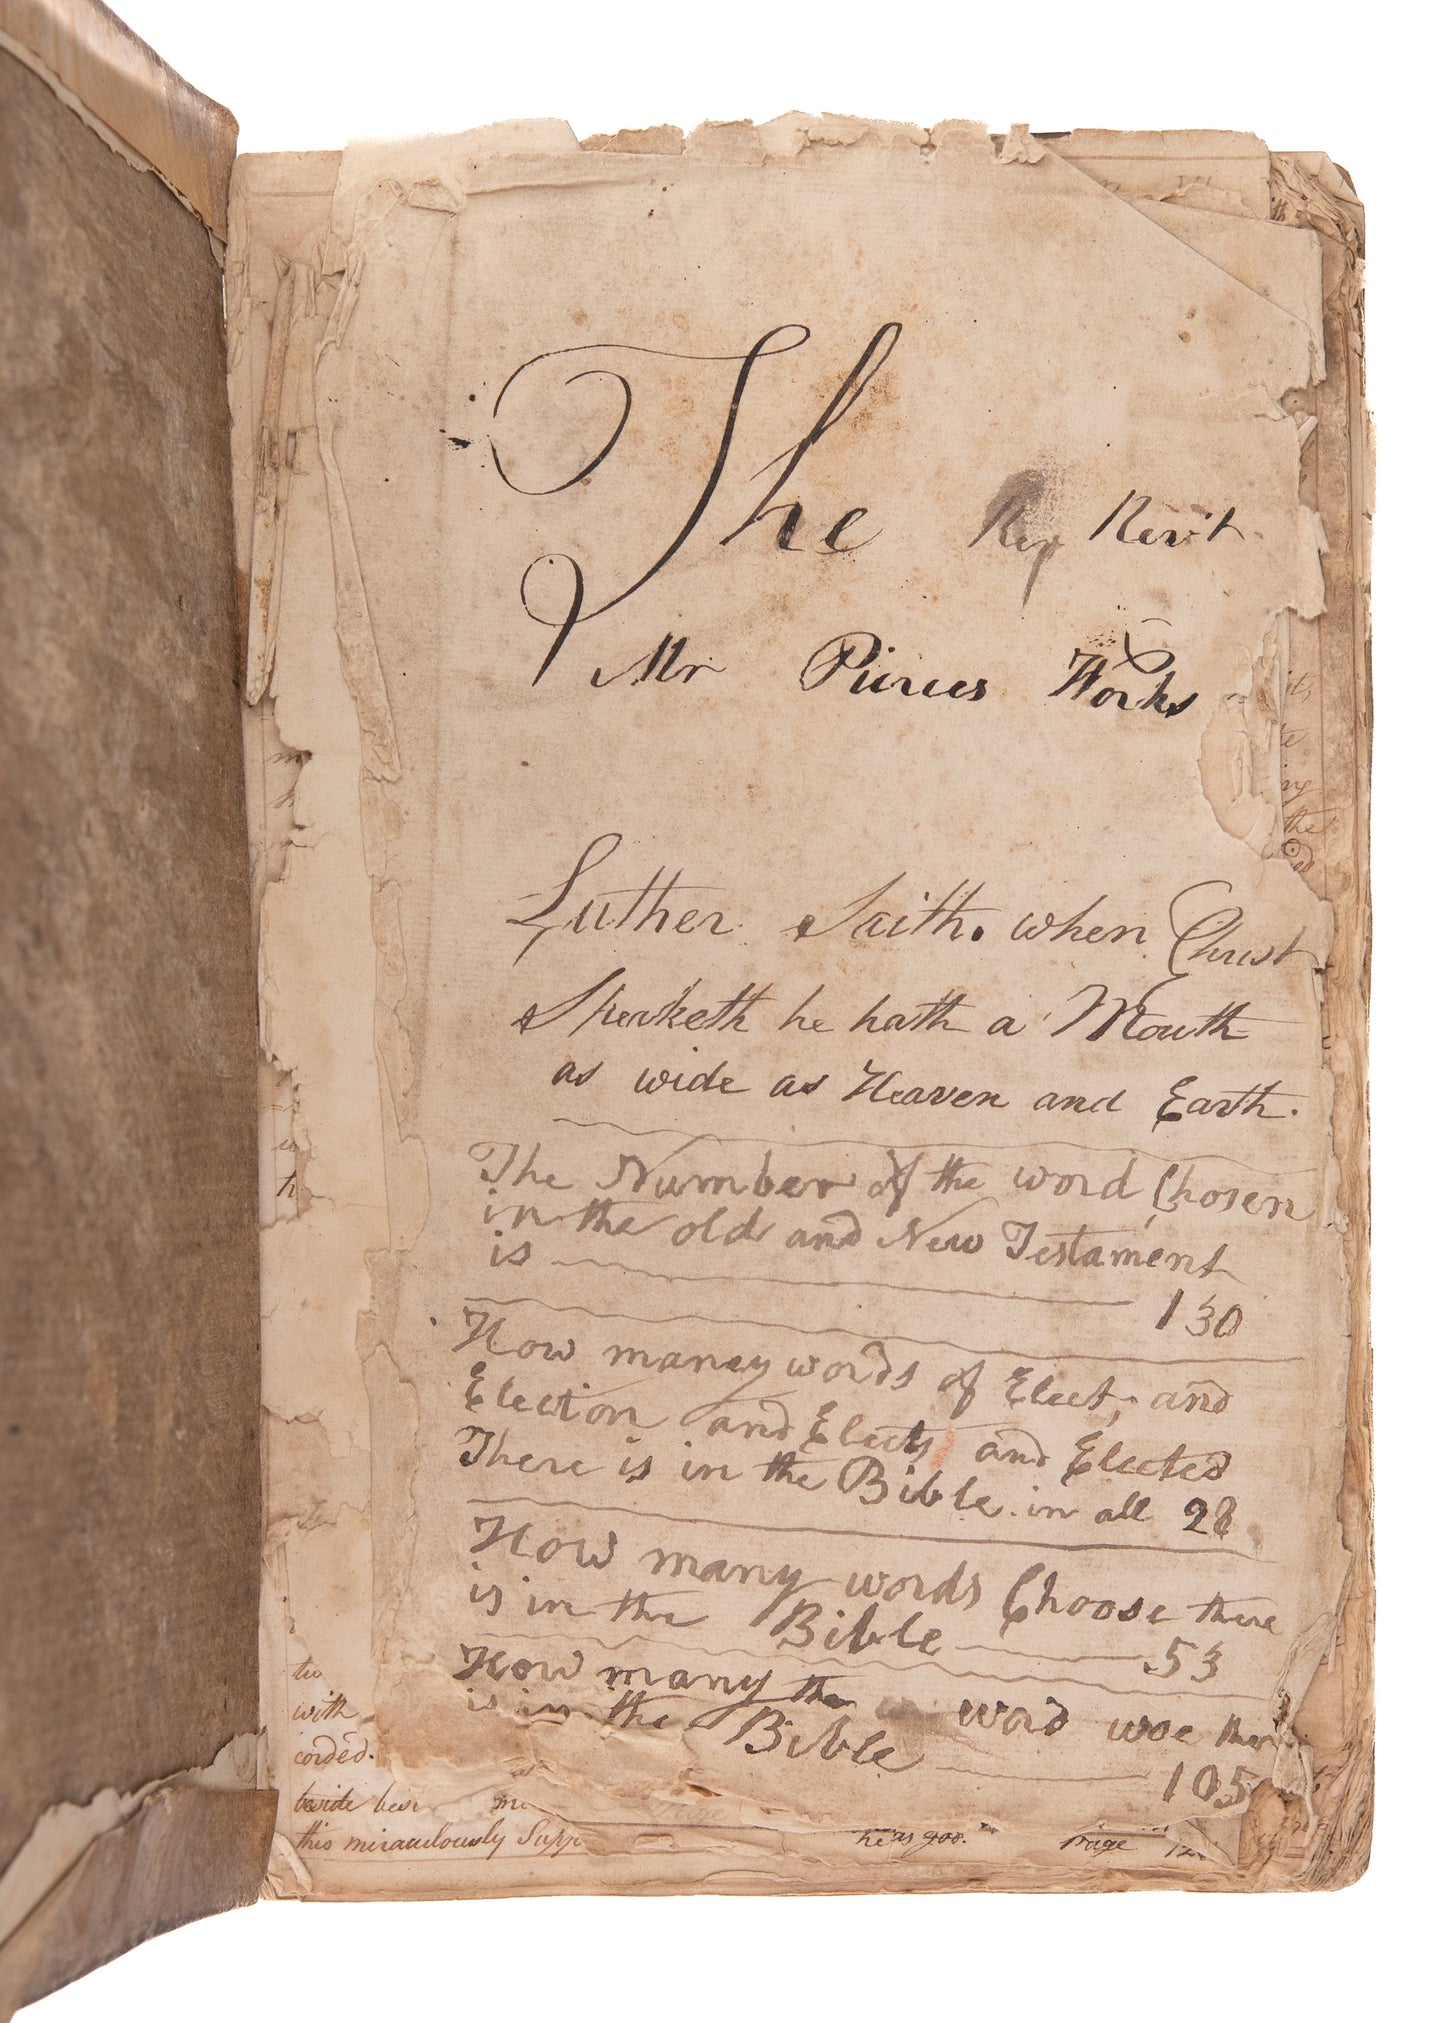 The Revt
Mr Pierces Works
Luther Saith. when Christ
Speaketh he hath a Mouth
as wide as Heaven and Earth.
The Number of the word Chosen
in the old and New Testament
is 130
How maney words of Elect, and
Election and Elects and Elected
There is in the Bible. in all 28
How many words Choose there
is in the Bible 53
How many the word woe ther
is in the Bible 105
to
with
corded.
this miraculously Supp